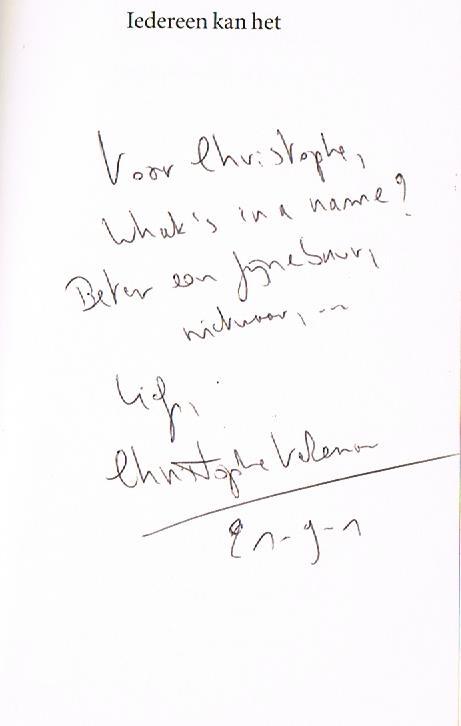 Iedereen kan het
Voor Christophe,
What's in a name?
Beter een fijne buur,
nietwaar, ...
Liefs,
Christophe Vekeman
21-9-1